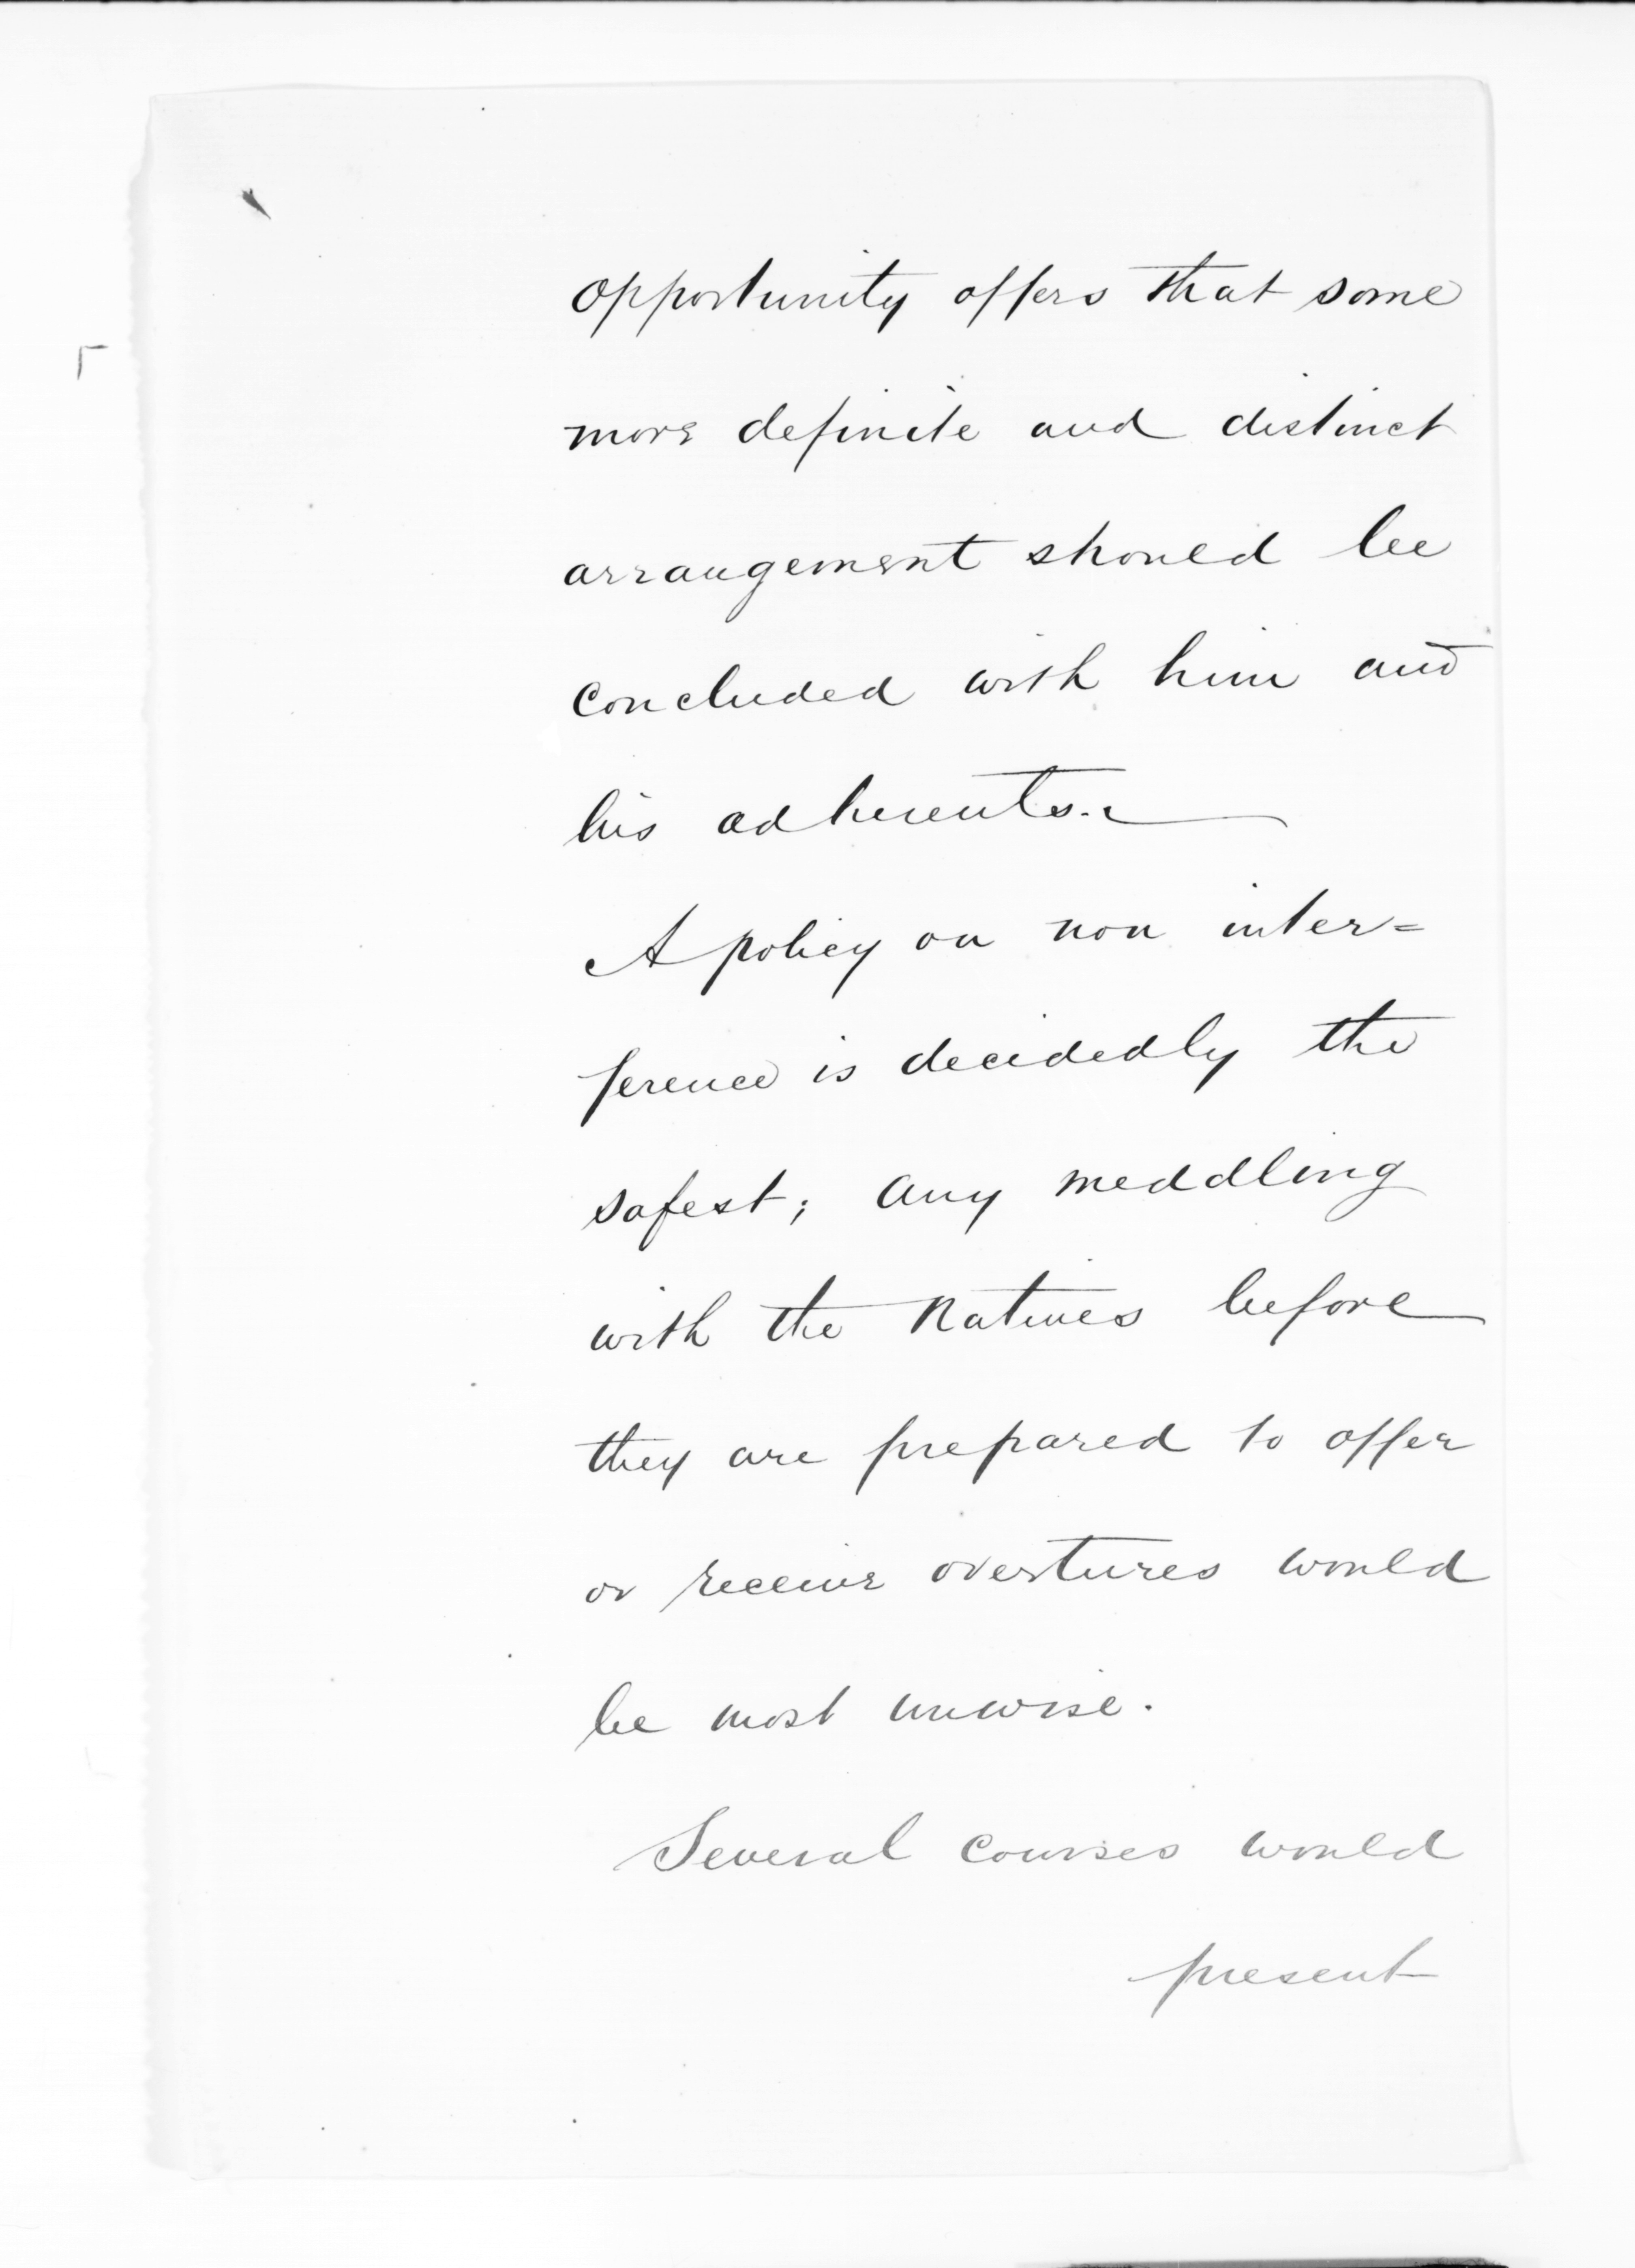 opportunity offers that some
more definite and distinct
arrangement should be
concluded with him and
his adherents.
A policy on non inter=
ference is decidedly the
safest; any meddling
with the Natives before
they are prepared to offer
or receive overtures would
be most unwise.
Several courses would
present